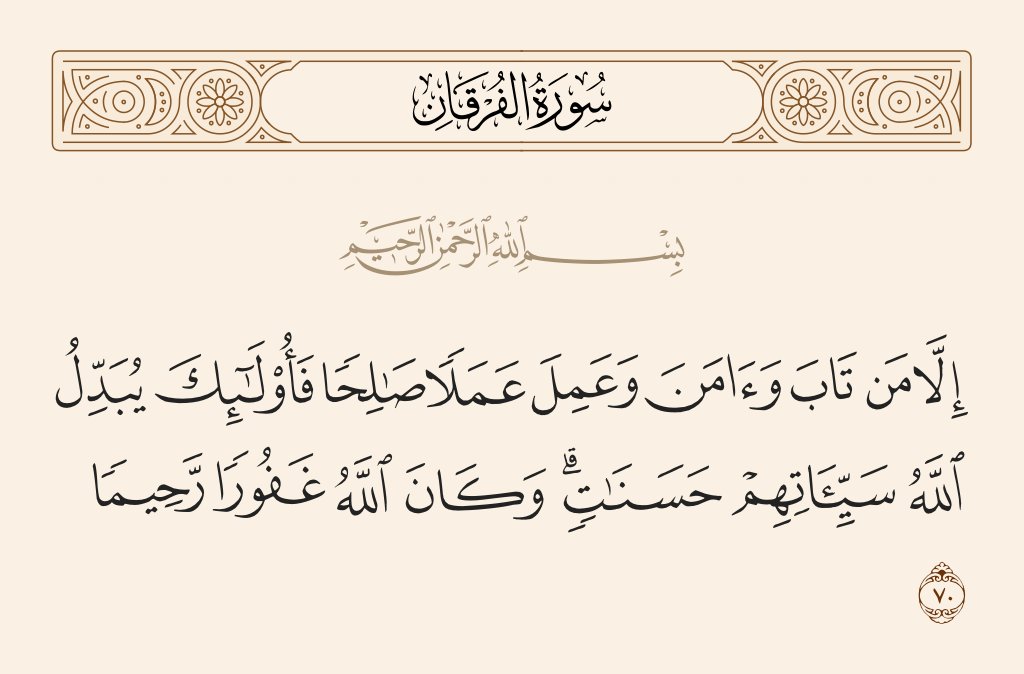 سُورَةُ الفُرْقَانِ
بِسْمِ ٱللَّهِ ٱلرَّحْمَٰنِ ٱلرَّحِيمِ
إِلَّا مَن تَابَ وَءَامَنَ وَعَمِلَ عَمَلًا صَٰلِحًا فَأُو۟لَٰٓئِكَ يُبَدِّلُ
ٱللَّهُ سَيِّـَٔاتِهِمْ حَسَنَٰتٍ ۗ وَكَانَ ٱللَّهُ غَفُورًا رَّحِيمًا
٧٠